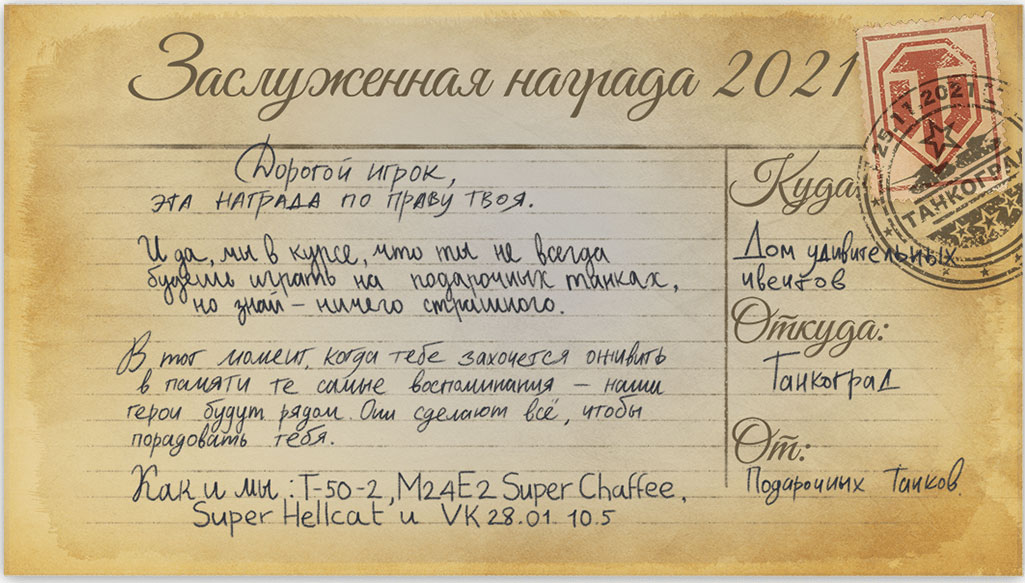 Заслуженная награда 2021
Дорогой игрок,
эта награда по праву твоя.
И да, мы в курсе, что ты не всегда
будешь играть на подарочных танках,
но знай – ничего страшного.
В тот момент, когда тебе захочется оживить
в памяти те самые воспоминания – наши
герои будут рядом. Они сделают всё, чтобы
порадовать тебя.
Как и мы: Т-50-2, M24E2 Super Chaffee,
Super Hellcat и VK 28.01 10.5
25.11.2021
ТАНКОГРАД
Куда:
Дом удивительных
ивентов
Откуда:
Танкоград
От:
Подарочных Танков.